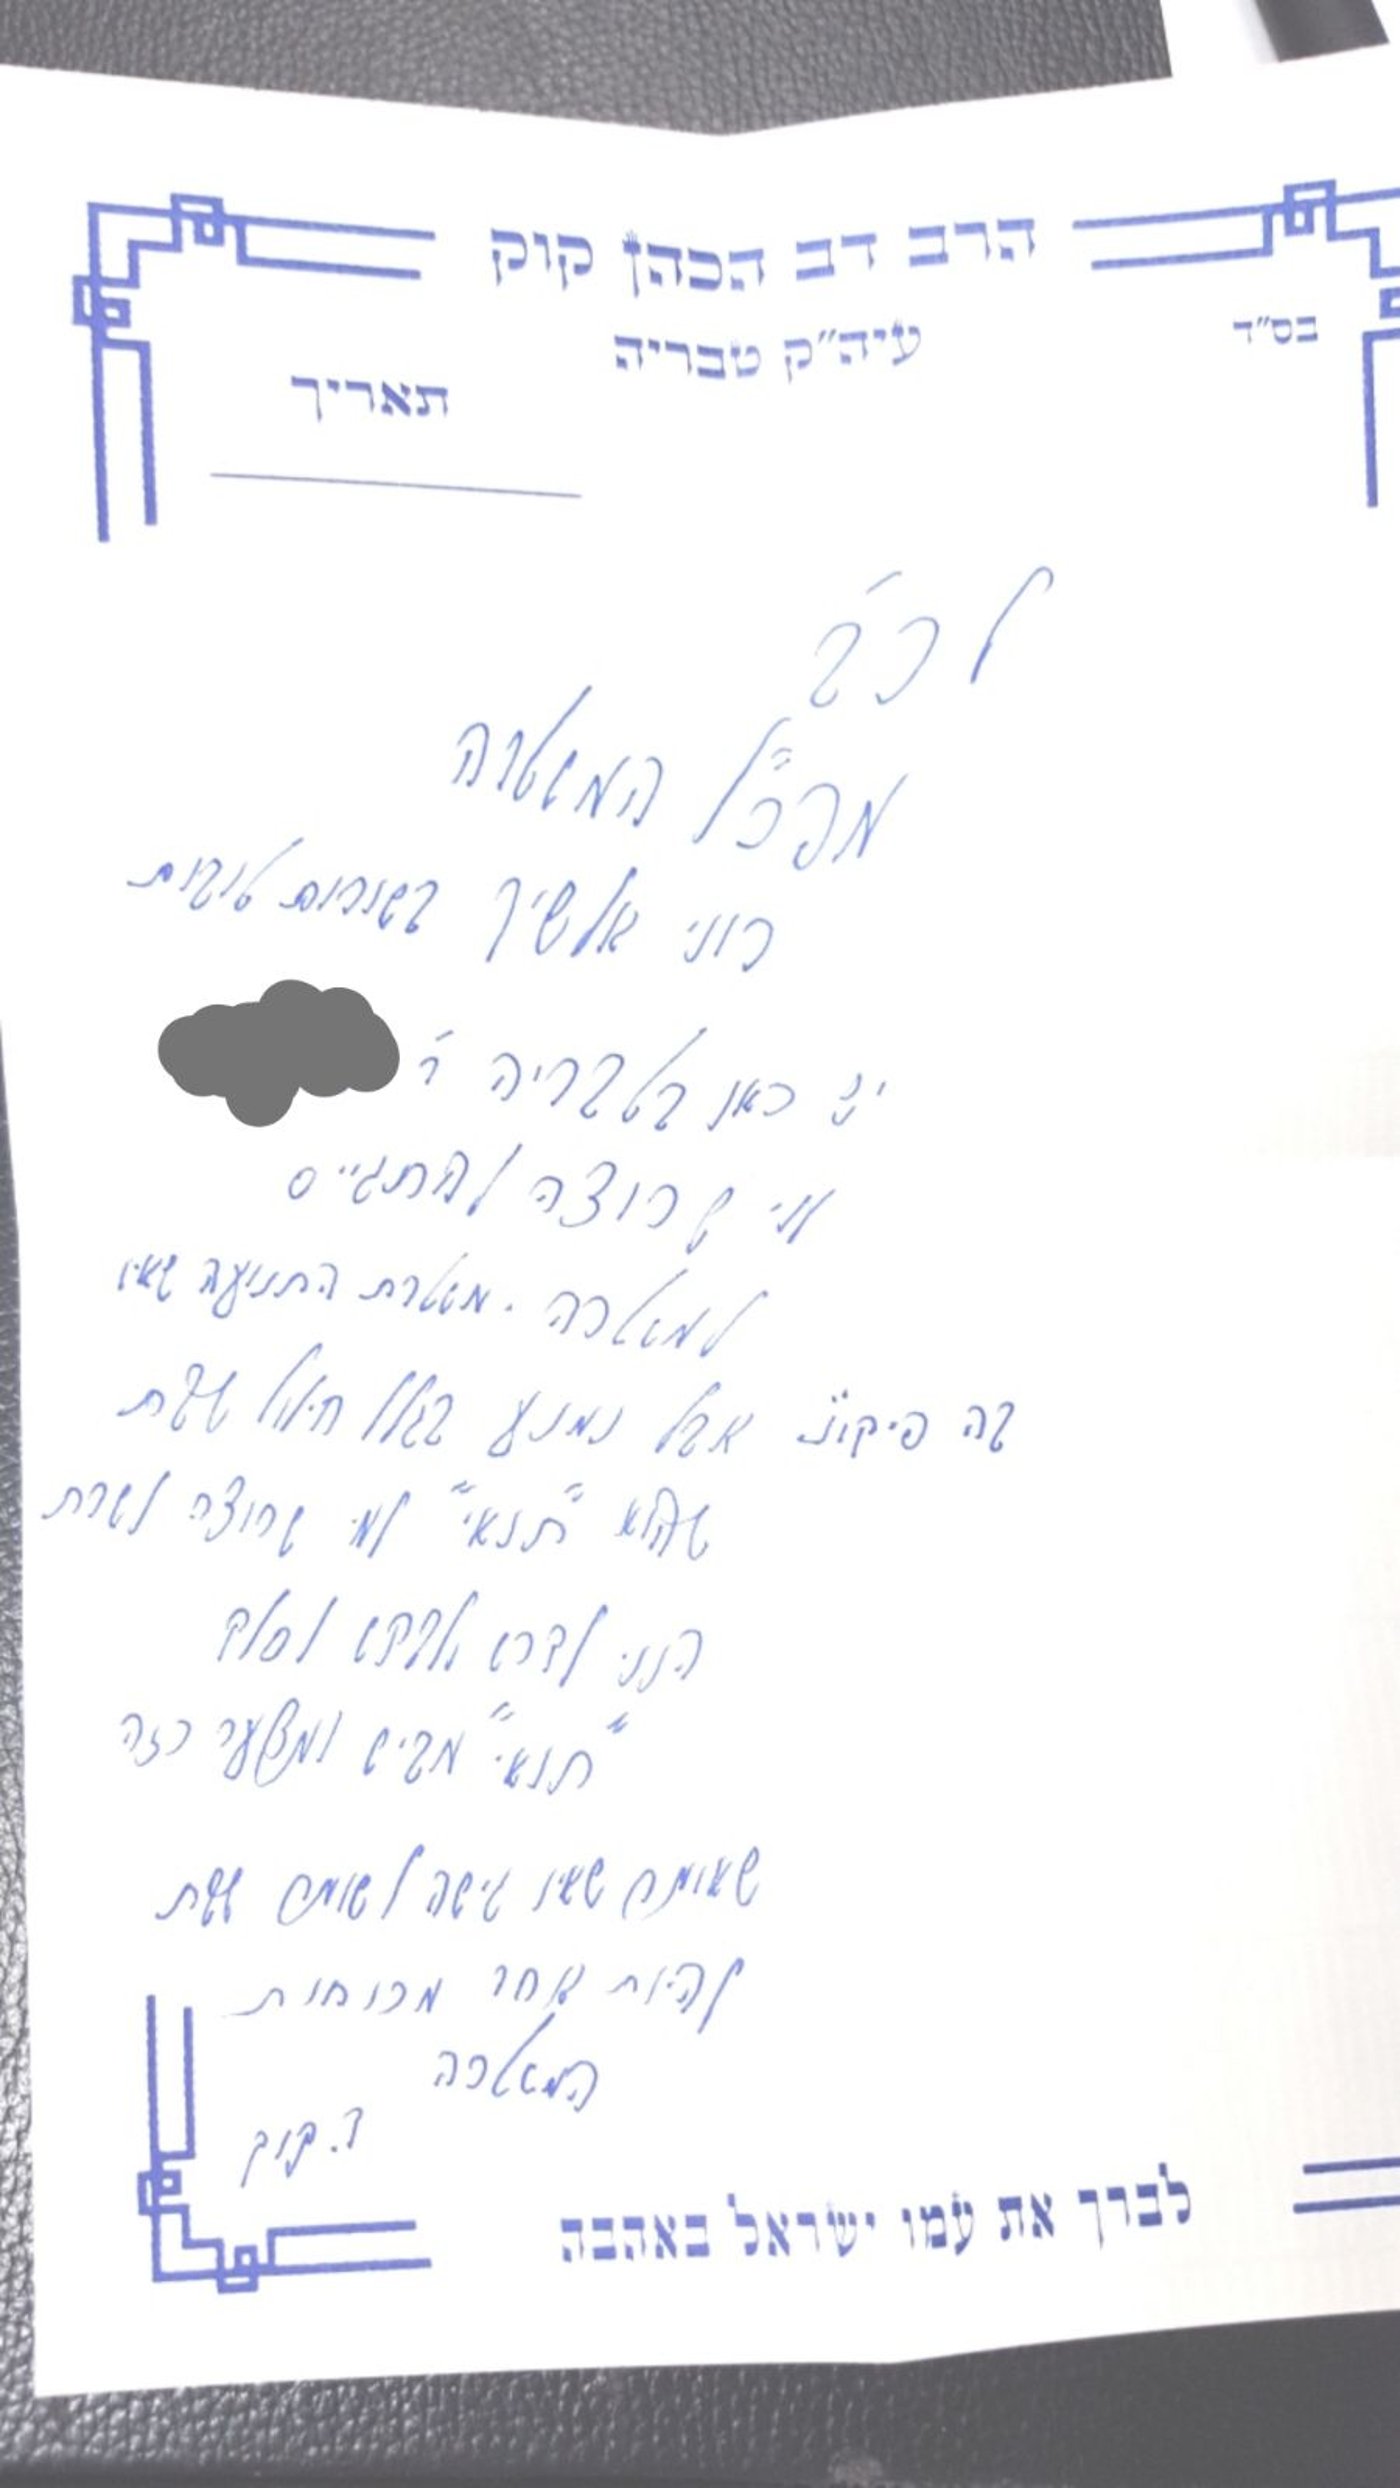 הרב דב הכהן קוק
בס"ד
עיה"ק טבריה
תאריך
לכ'
מפכ"ל המשטרה
רוני אלשיך בשורות טובות
יש כאן בטבריה ר'
שרוצה להתגייס
למשטרה. משטרת התנועה שאין
בה פיקו"נ אבל נמנע בגלל חילול שבת
שהוא "תנאי" למי שרוצה לשרת
הנני לדרוש ולבקש לסלק
"תנאי" מביש ומצער כזה
שאומר שאין גישה לשומר שבת
להיות אחד מכוחות
המשטרה
ד. קוק
לברך את עמו ישראל באהבה